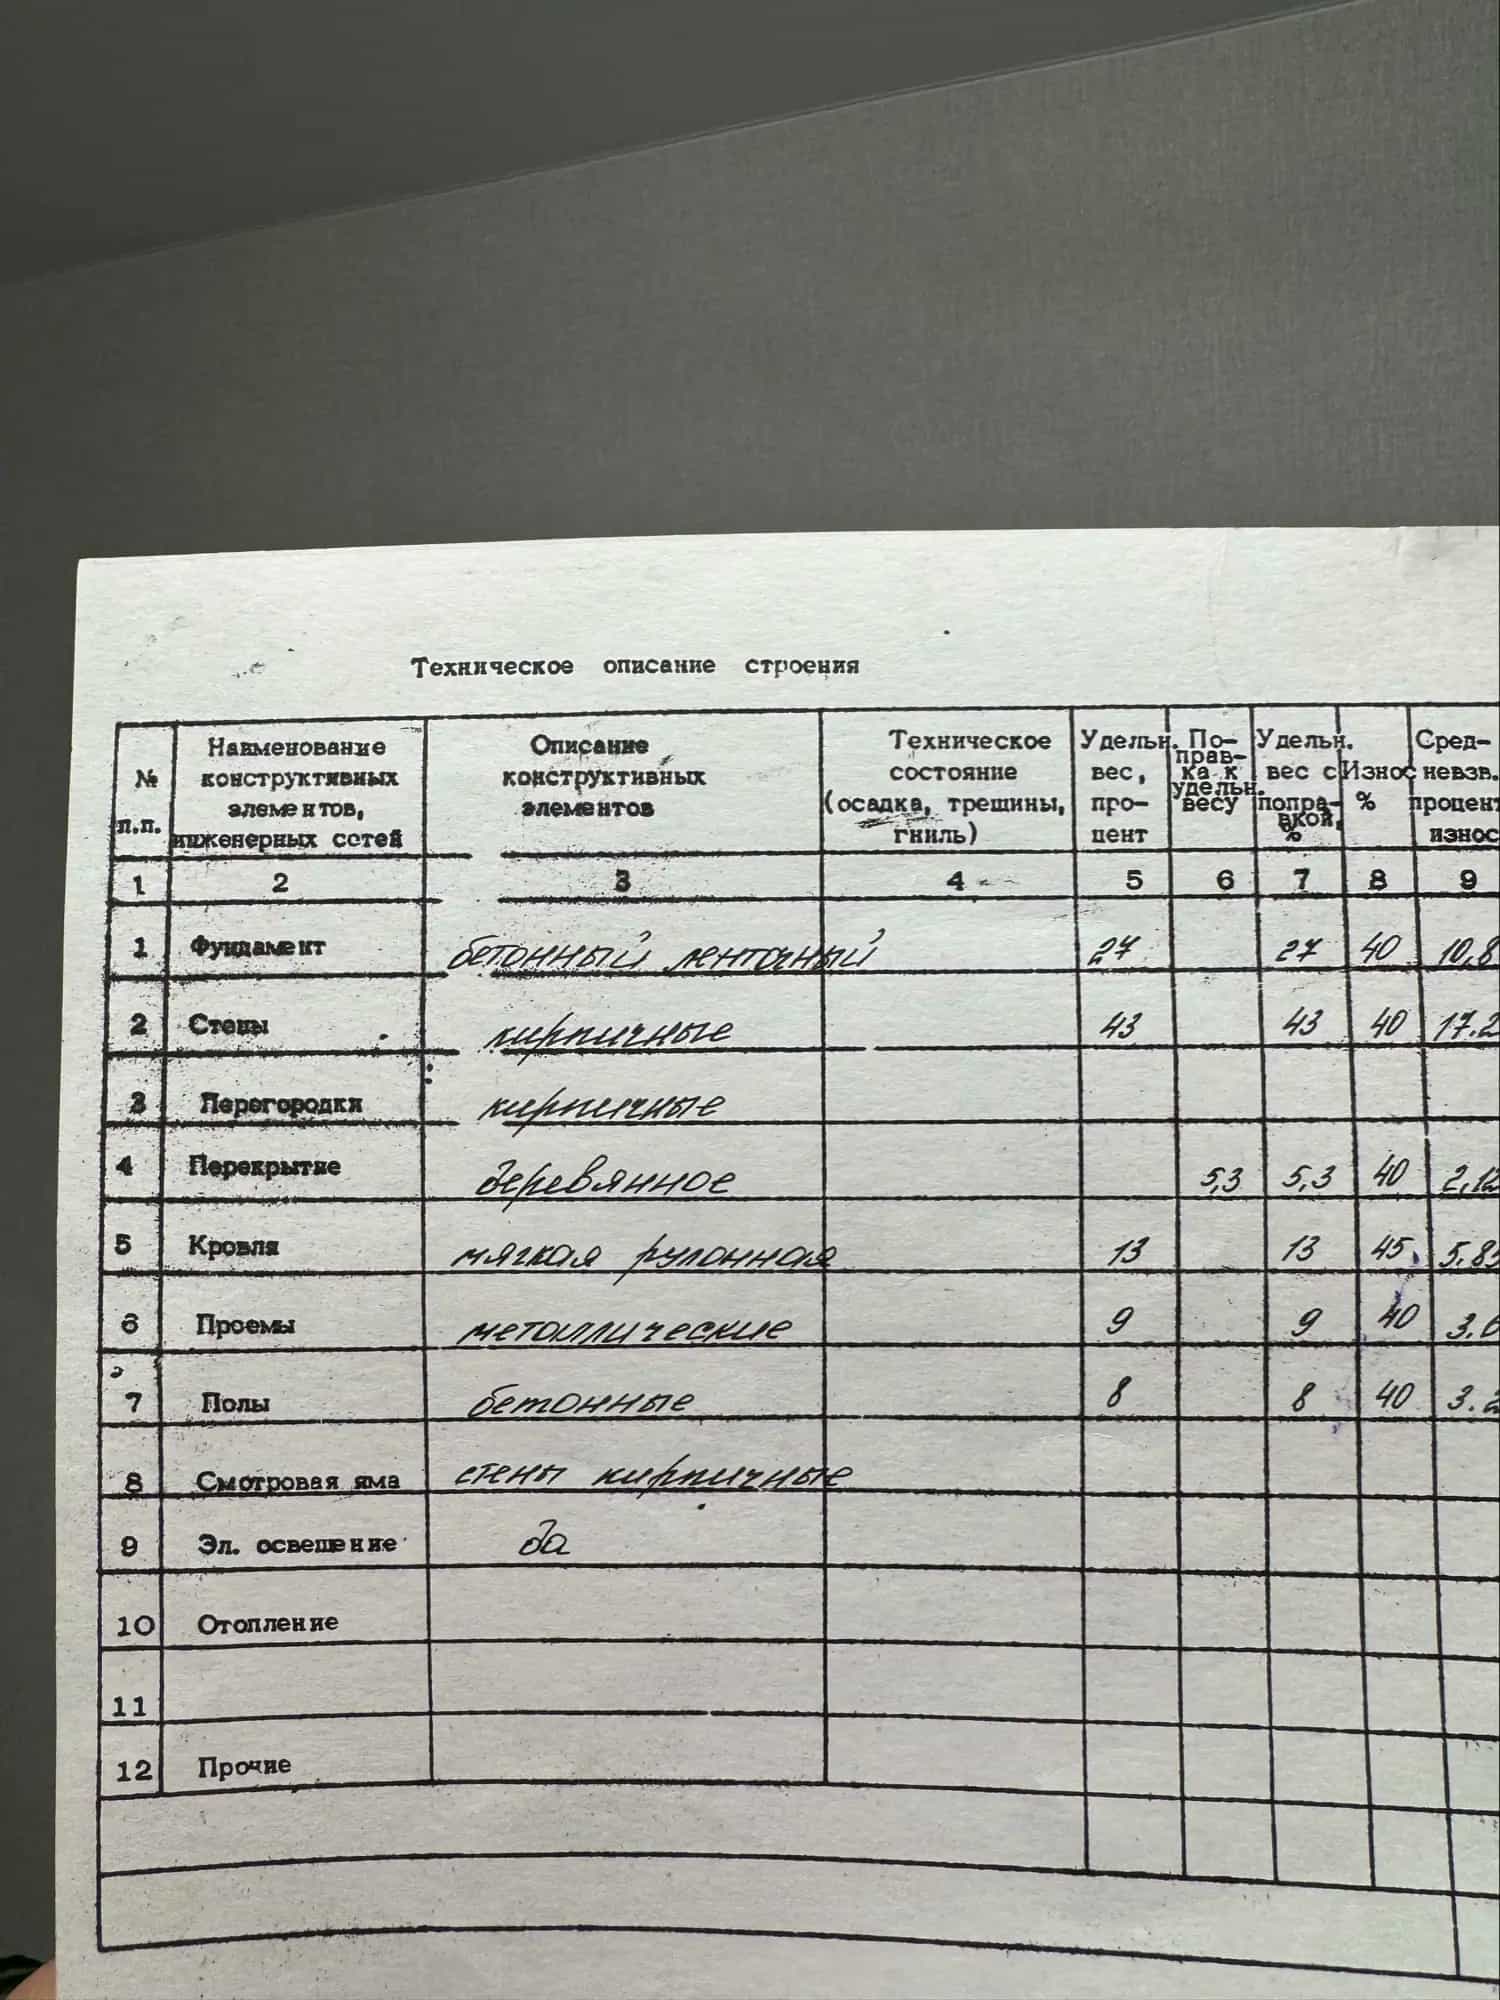 Техническое описание строения
№ п.п. Наименование конструктивных элементов, инженерных сетей Описание конструктивных элементов Техническое состояние (осадка, трещины, гниль) Удельн. вес, процент Поправка к удельн. весу Удельн. вес с поправкой, % Износ % Средневзв. процент износ
1 2 3 4 5 6 7 8 9
1 Фундамент бетонный ленточный 27 27 40 10,8
2 Стены кирпичные 43 43 40 17.2
3 Перегородки кирпичные
4 Перекрытие деревянное 5,3 5,3 40 2,12
5 Кровля мягкая рулонная 13 13 45 5.85
6 Проемы металлические 9 9 40 3.6
7 Полы бетонные 8 8 40 3.2
8 Смотровая яма стены кирпичные
9 Эл. освещение да
10 Отопление
11
12 Прочие